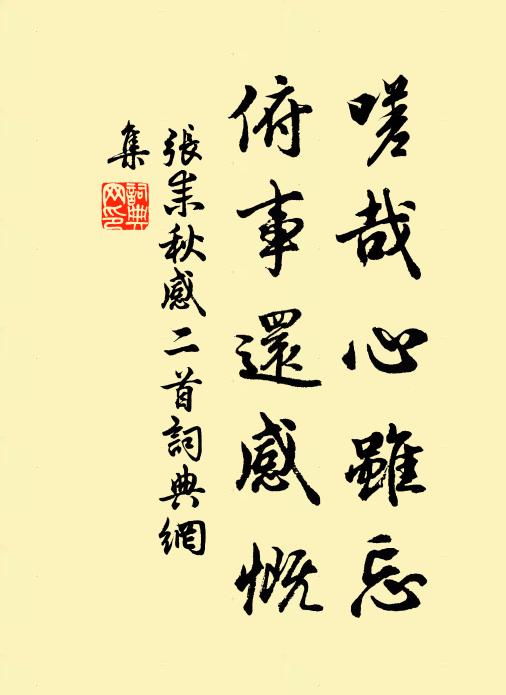 嗟哉心雖忘
俯事還感慨
張耒秋感二首詞典網
集
詞典
网印